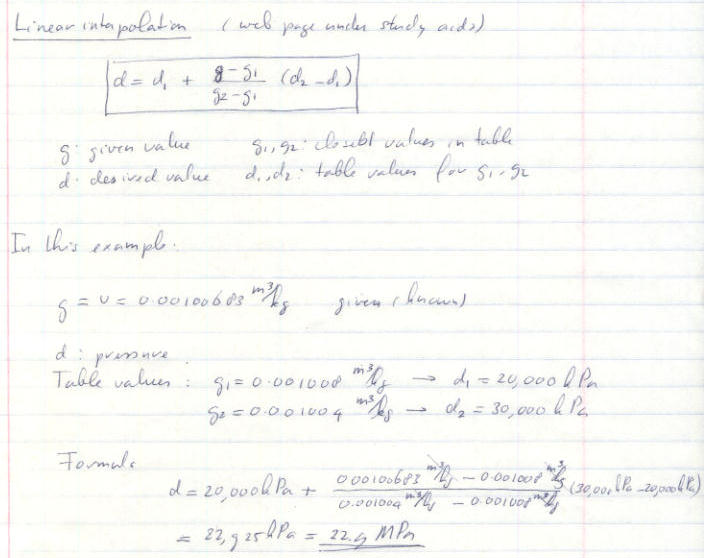 Linear interpolation (web page under study aids)
d = d₁ + (g - g₁)/(g₂ - g₁) (d₂ - d₁)
g: given value g₁, g₂: closest values in table
d: desired value d₁, d₂: table values for g₁, g₂
In this example:
g = v = 0.00100683 m³/kg given (known)
d: pressure
Table values: g₁ = 0.001008 m³/kg → d₁ = 20,000 kPa
g₂ = 0.001004 m³/kg → d₂ = 30,000 kPa
Formula
d = 20,000 kPa + (0.00100683 m³/kg - 0.001008 m³/kg)/(0.001004 m³/kg - 0.001008 m³/kg) (30,000 kPa - 20,000 kPa)
= 22,925 kPa = 22.9 MPa